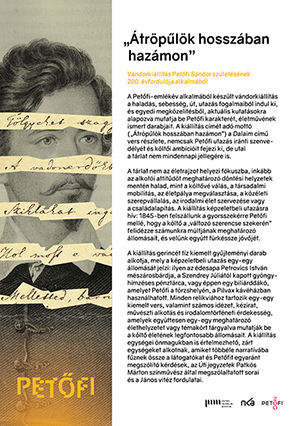 „Átröpűlök hosszában
hazámon”
Vándorkiállítás Petőfi Sándor születésének
200. évfordulója alkalmából
A Petőfi-emlékév alkalmából készült vándorkiállítás
a haladás, sebesség, út, utazás fogalmaiból indul ki,
és egyedi megközelítésből, aktuális kutatásokra
alapozva mutatja be Petőfi karakterét, életművének
ismert darabjait. A kiállítás címét adó mottó
(„Átröpűlök hosszában hazámon”) a Dalaim című
vers részlete, nemcsak Petőfi utazás iránti szenve-
délyét és költői ambícióit fejezi ki, de utal
a tárlat nem mindennapi jellegére is.
A tárlat nem az életrajzot helyezi fókuszba, inkább
az alkotói attitűdöt meghatározó döntési helyzetek
mentén halad, mint a költővé válás, a társadalmi
mobilitás, az életpálya megválasztása, a közéleti
szerepvállalás, az irodalmi élet szervezése vagy
a családalapítás. A kiállítás képzeletbeli utazásra
hív: 1845-ben felszállunk a gyorsszekérre Petőfi
mellé, hogy a költő a „változó szerencse szekerén”
felidézze számunkra múltjának meghatározó
állomásait, és velünk együtt fürkéssze jövőjét.
A kiállítás gerincét tíz kiemelt gyűjteményi darab
alkotja, mely a képzeletbeli utazás egy-egy
állomását jelzi: ilyen az édesapa Petrovics István
mészárosbárdja, a Szendrey Júliától kapott gyöngy-
hímzéses pénztárca, vagy éppen egy biliárddákó,
amelyet Petőfi a törzshelyén, a Pilvax kávéházban
használhatott. Minden relikviához tartozik egy-egy
kiemelt vers, valamint számos idézet, kézirat,
művészeti alkotás és irodalomtörténeti érdekesség,
amelyek együttesen egy-egy meghatározó
élethelyzetet vagy témakört tárgyalva mutatják be
a költő életének legfontosabb állomásait. A kiállítás
egységei önmagukban is értelmezhető, zárt
egységeket alkotnak, amiket többféle narratívába
fűznek össze a látogatókat és Petőfit egyaránt
megszólító kérdések, az Úti jegyzetek Patkós
Márton színművész által megszólaltatott sorai
és a János vitéz fordulatai.
A vadonerdő
PETŐFI
nka